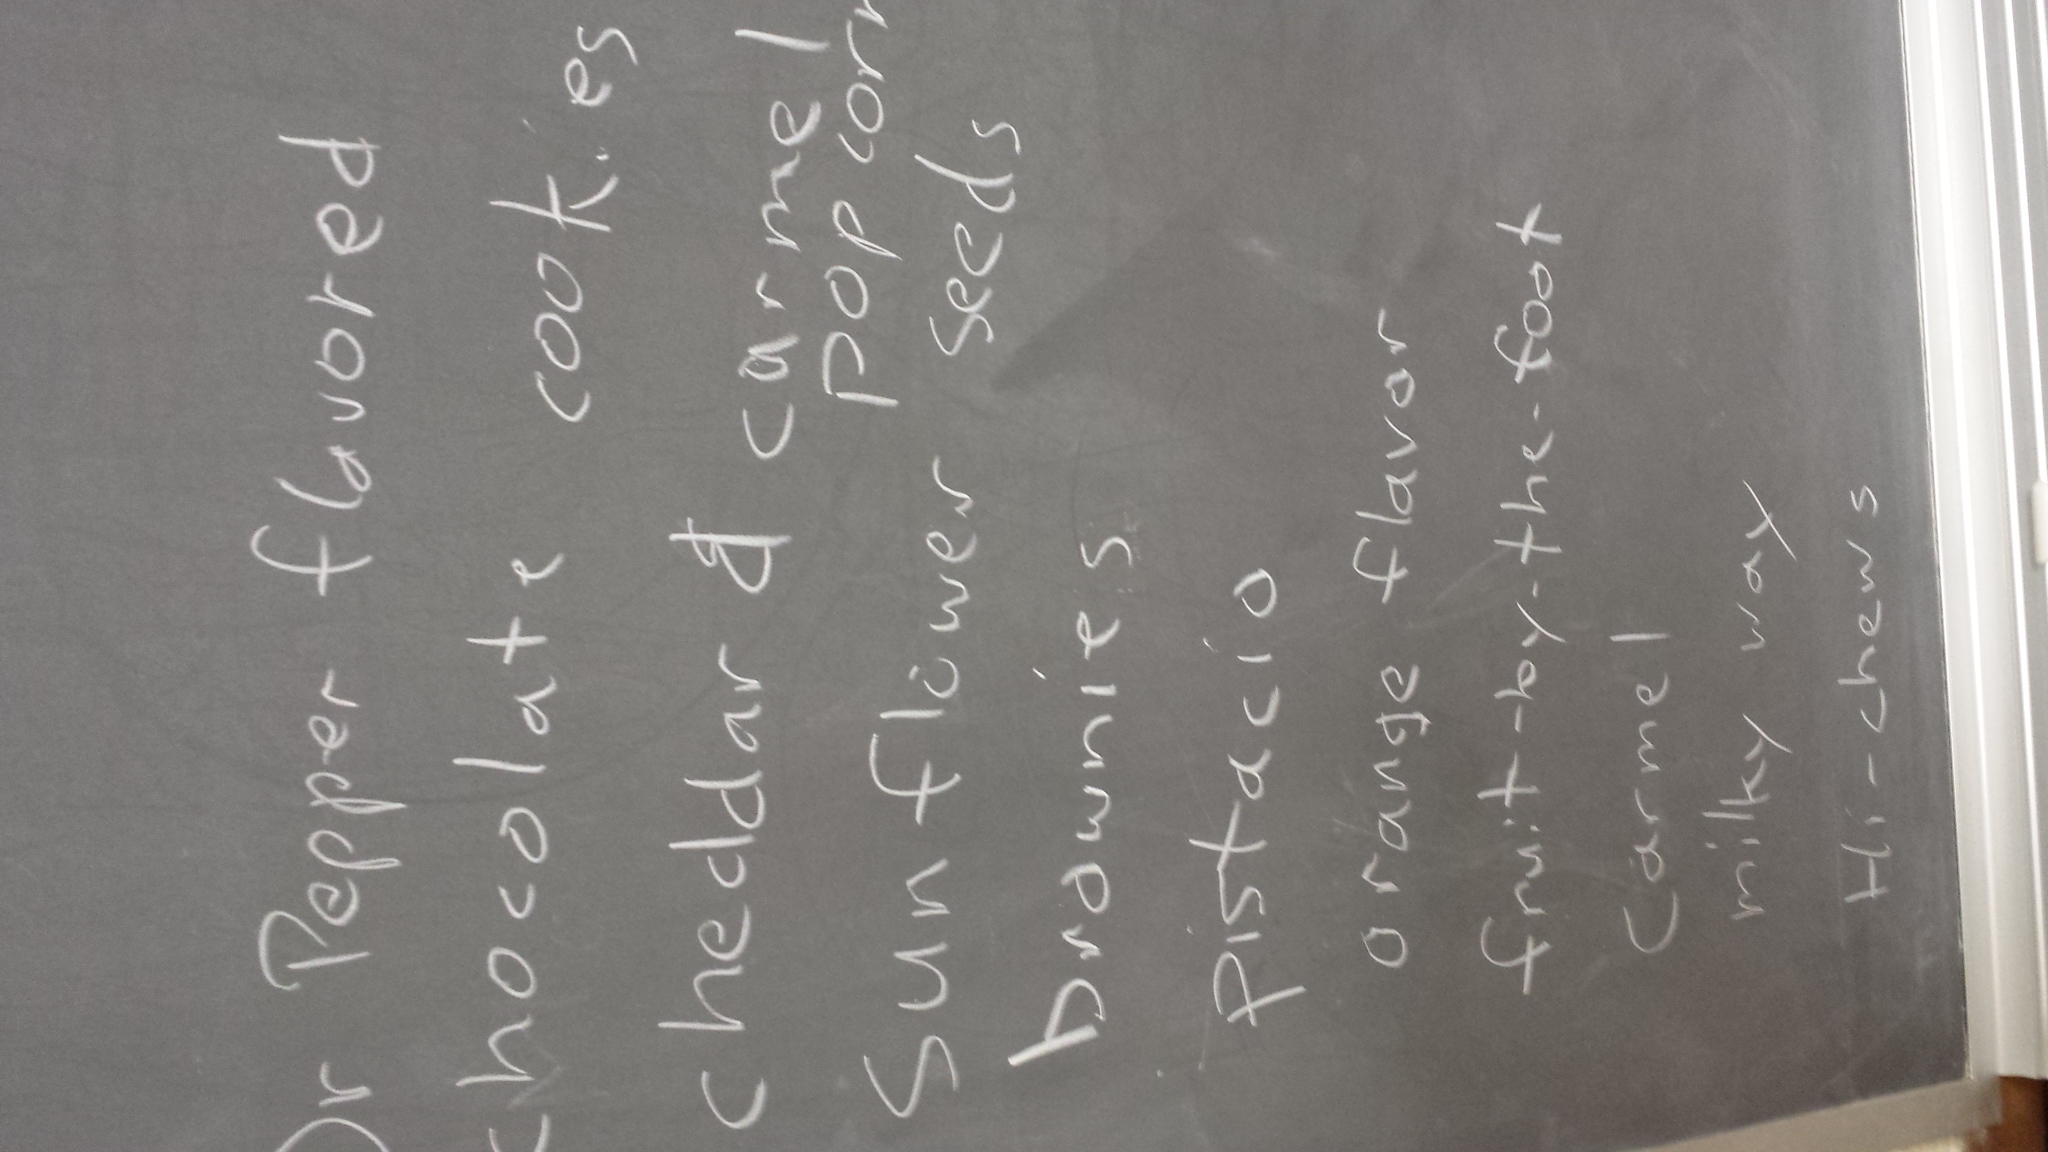 Dr Pepper flavored
chocolate cookies
cheddar & carmel
popcorn
Sunflower seeds
brownies
Pistacio
orange flavor
fruit-by-the-foot
carmel
milky way
Hi-chews